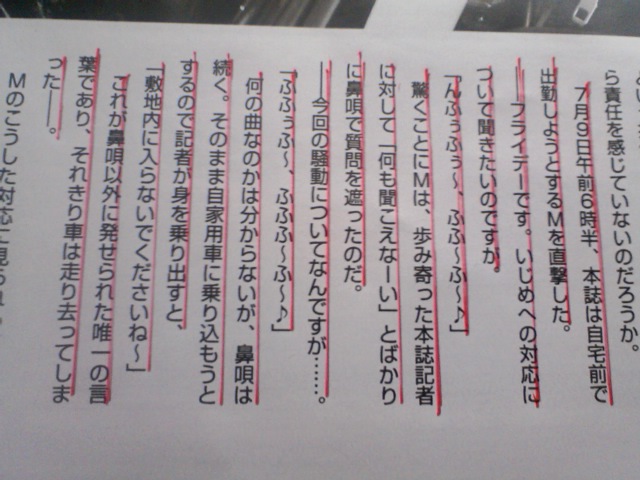 ら責任を感じていないのだろうか。
7月9日午前6時半、本誌は自宅前で
出勤しようとするMを直撃した。
――フライデーです。いじめへの対応に
ついて聞きたいのですが。
「んふぅふぅ〜、ふふ〜ふ〜♪」
驚くことにMは、歩み寄った本誌記者
に対して「何も聞こえなーい」とばかり
に鼻唄で質問を遮ったのだ。
――今回の騒動についてなんですが……。
「ふふぅふ〜、ふふふふ〜ふ〜♪」
何の曲なのかは分からないが、鼻唄は
続く。そのまま自家用車に乗り込もうと
するので記者が身を乗り出すと、
「敷地内に入らないでくださいね〜」
これが鼻唄以外に発せられた唯一の言
葉であり、それきり車は走り去ってしま
った――。
Mのこうした対応に見られ